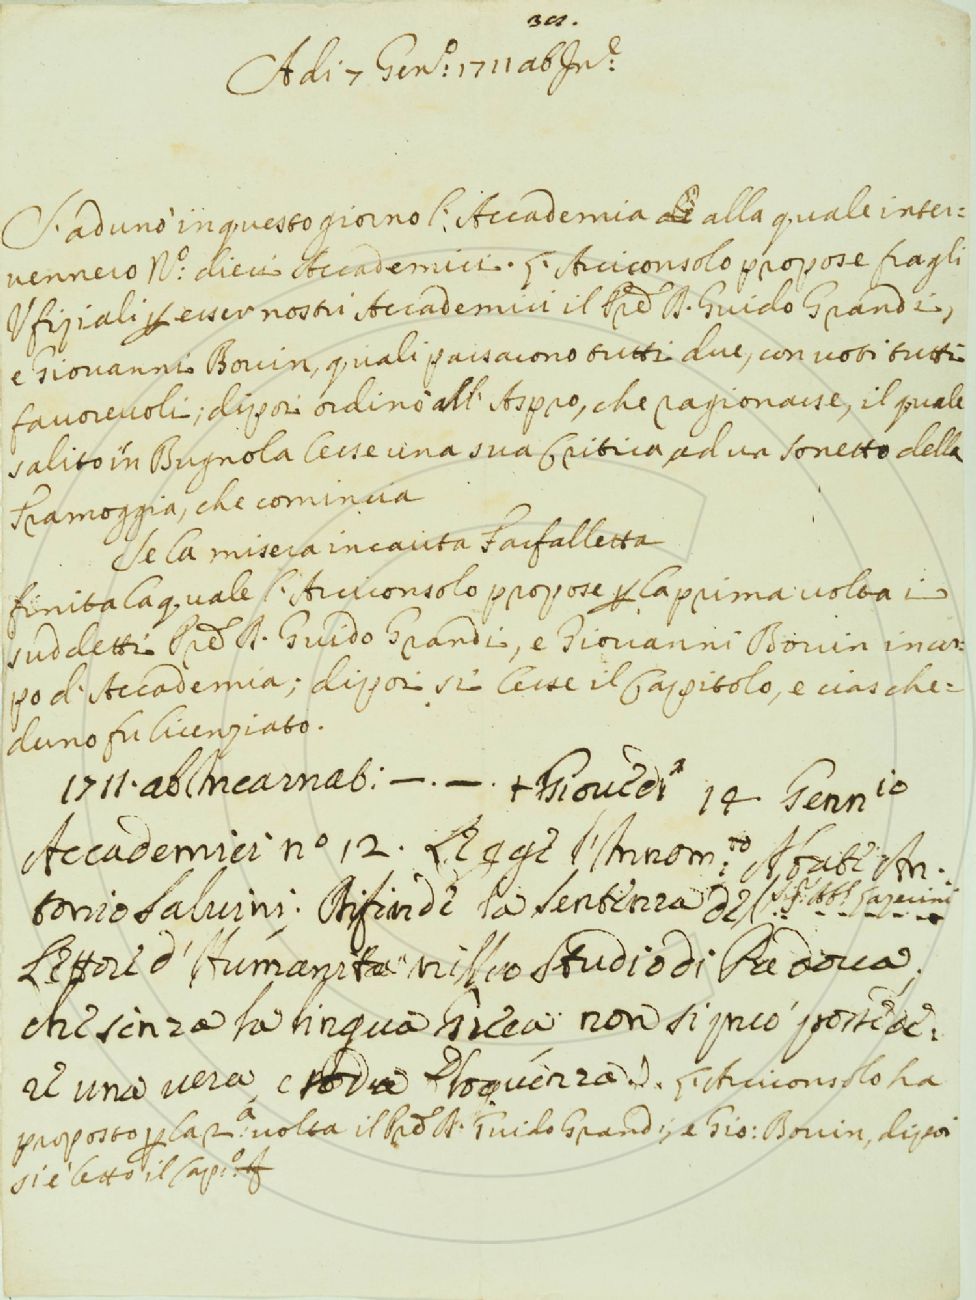 Adi 7 Gen.º: 1711 ab In.e
S'adunò in questo giorno l'Accademia alla quale inter=
vennero N.º: dieci Accademici. L'Arciconsolo propose fra gli
Ufiziali p esser nostri Accademici il Pre D. Guido Grandi,
e Giovanni Bovin, quali passarono tutti due, con voti tutti
favorevoli; dipoi ordinò all' Aspro, che ragionasse, il quale
salito in Bugnola lesse una sua Critica ad un Sonetto della
Tramoggia, che comincia
Se la misera incauta Farfalletta
finita la quale l'Arciconsolo propose p la prima volta i
suddetti Pre D. Guido Grandi, e Giovanni Bovin in cor=
po d'Accademia; dipoi si lesse il Capitolo, e ciasche=
duno fu licenziato.
1711. ab Incarnat: —. —. + Giovedì 14 Genn io
Accademici nº 12. Legge l'Innom.to Abate An.
tonio Salvini. Difende la sentenza del Sig.r Abb. Lazerini
Lettore d'Humanità nello Studio di Padova,
che senza la lingua Greca non si può possede:
re una vera, e soda Eloquenza. L'Arciconsolo ha
proposto p la 2.a volta il Pre D. Guido Grandi, e Gio: Bovin, dipoi
si è letto il Cap.º